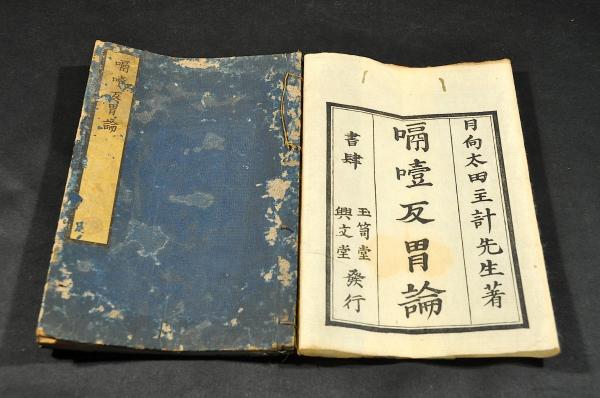 嗝噎反胃論
日向太田主計先生著
嗝噎反胃論
書肆
玉笥堂
興文堂
發行